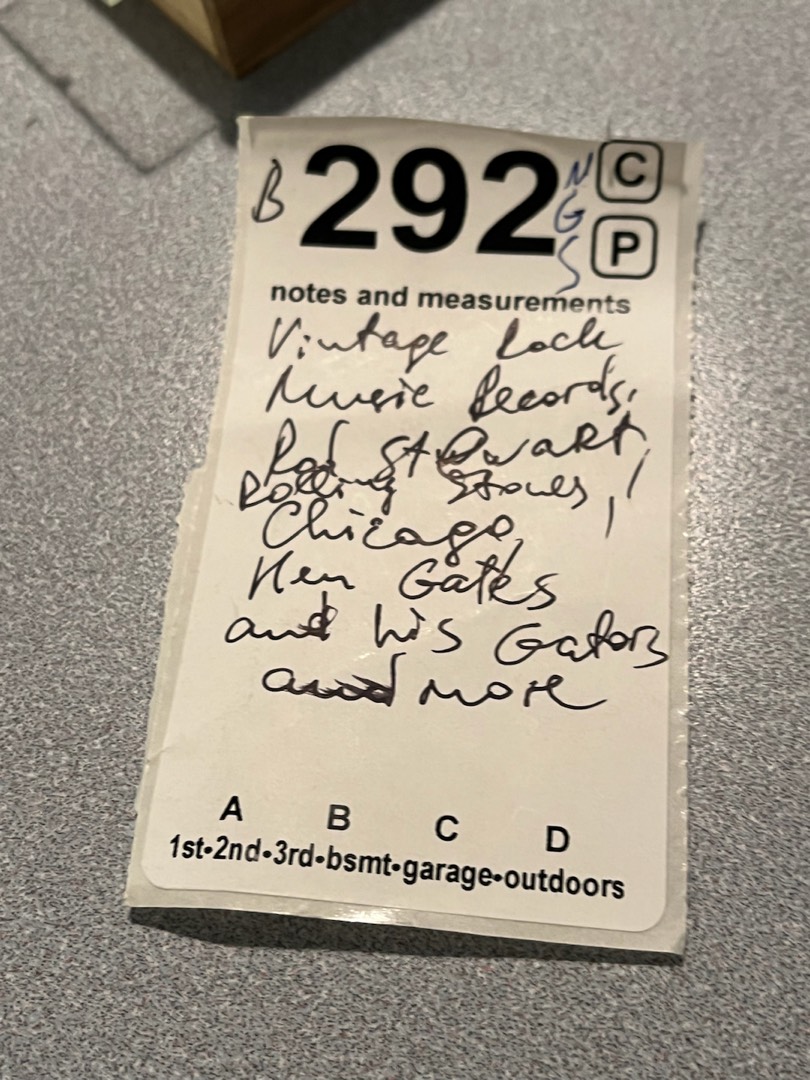 B 292 NGS C
P
notes and measurements
Vintage Rock
Music Records,
Rod Stewart,
Rolling Stones,
Chicago,
Hen Gates
and his Gators
and more
A B C D
1st•2nd•3rd•bsmt•garage•outdoors